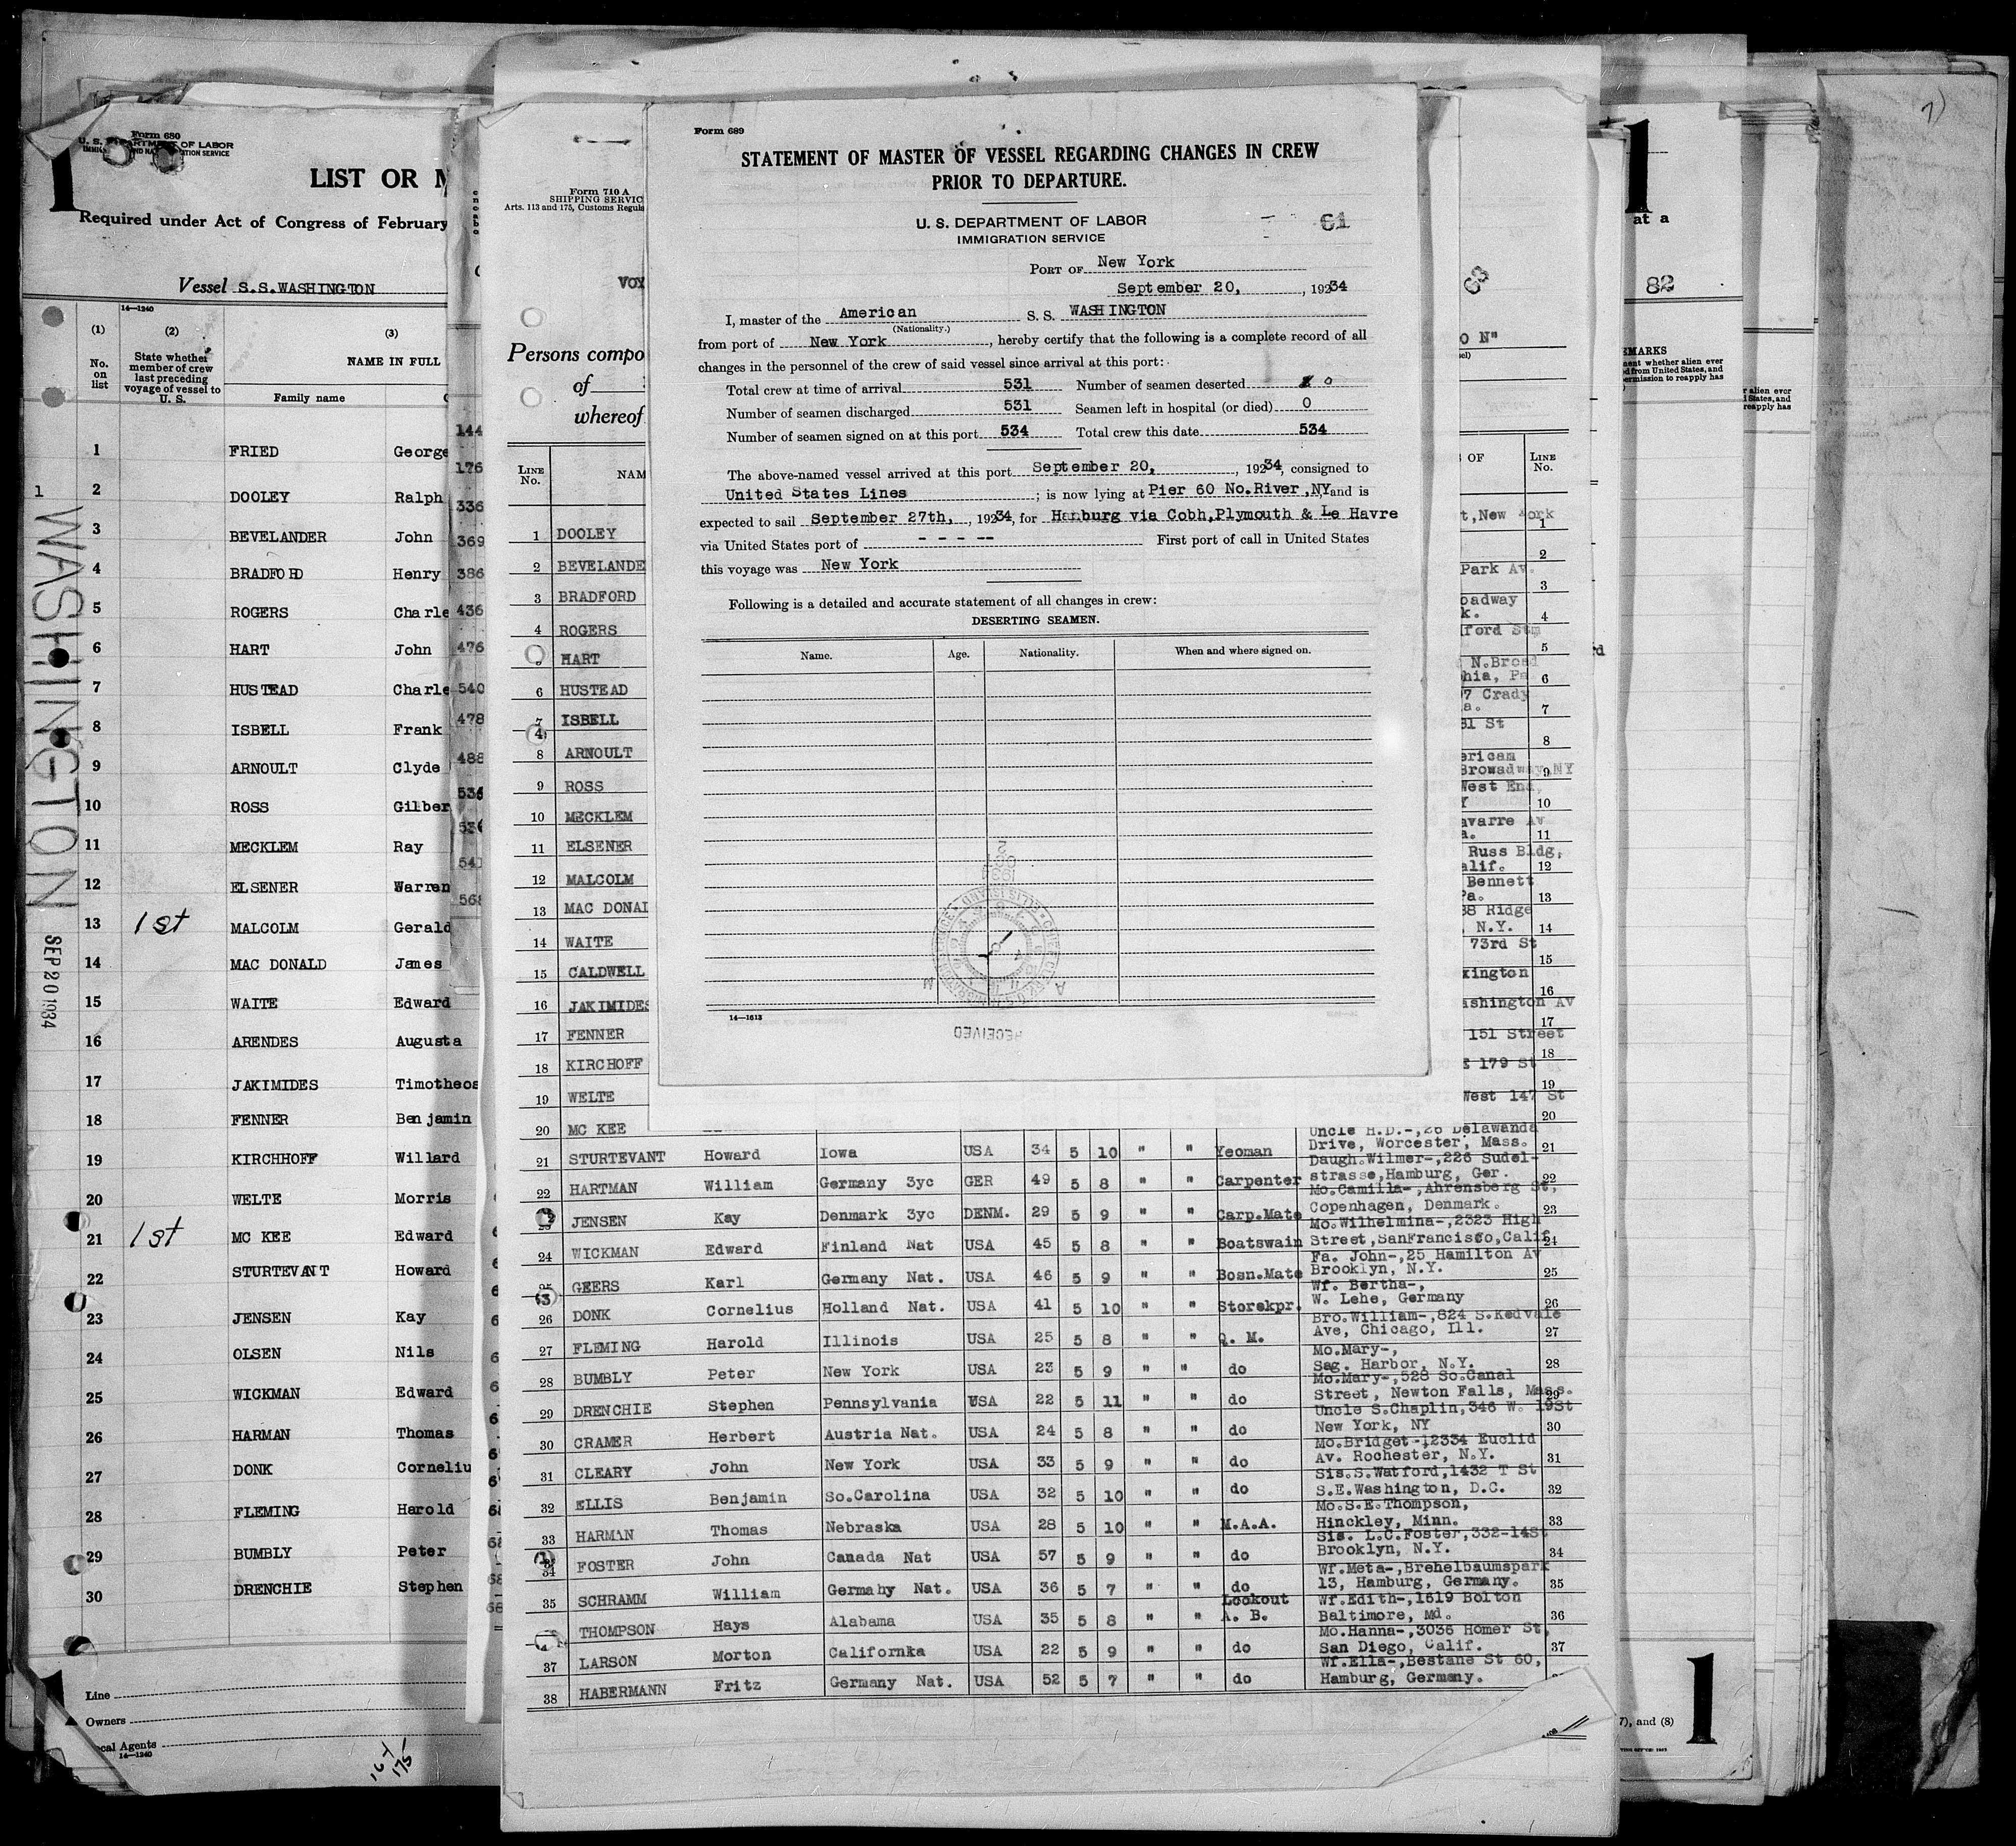 Form 680
U. S. DEPARTMENT OF LABOR
LIST OR M
Required under Act of Congress of February
Vessel S.S.WASHINGTON
14—1240
(1) (2) (3)
No. on list
State whether member of crew last preceding voyage of vessel to U. S.
NAME IN FULL
Family name
1 FRIED George
2 DOOLEY Ralph
3 BEVELANDER John
4 BRADFORD Henry
5 ROGERS Charle
6 HART John
7 HUSTEAD Charle
8 ISBELL Frank
9 ARNOULT Clyde
10 ROSS Gilber
11 MECKLEM Ray
12 ELSENER Warren
13 1st MALCOLM Gerald
14 MAC DONALD James
15 WAITE Edward
16 ARENDES Augusta
17 JAKIMIDES Timotheos
18 FENNER Benjamin
19 KIRCHHOFF Willard
20 WELTE Morris
21 1st MC KEE Edward
22 STURTEVANT Howard
23 JENSEN Kay
24 OLSEN Nils
25 WICKMAN Edward
26 HARMAN Thomas
27 DONK Corneliu
28 FLEMING Harold
29 BUMBLY Peter
30 DRENCHIE Stephen
Line
Owners
cal Agents
14—1240
164
175
1 WASHINGTON
SEP 20 1934
144
176
336
369
386
436
476
540
478
488
Form 710 A
SHIPPING SERVIC
Arts. 113 and 175, Customs Regula
VOY
Persons compo
of
whereof
LINE No. NAM
1 DOOLEY
2 BEVELANDE
3 BRADFORD
4 ROGERS
HART
6 HUSTEAD
7 ISBELL
8 ARNOULT
9 ROSS
10 MECKLEM
11 ELSENER
12 MALCOLM
13 MAC DONAL
14 WAITE
15 CALDWELL
16 JAKIMIDES
17 FENNER
18 KIRCHOFF
19 WELTE
20 MC KEE
Form 689
STATEMENT OF MASTER OF VESSEL REGARDING CHANGES IN CREW
PRIOR TO DEPARTURE.
U. S. DEPARTMENT OF LABOR
61
IMMIGRATION SERVICE
PORT OF New York
September 20, , 19234
I, master of the American S. S. WASHINGTON
(Nationality.)
from port of New York, hereby certify that the following is a complete record of all
changes in the personnel of the crew of said vessel since arrival at this port:
Total crew at time of arrival 531 Number of seamen deserted 0
Number of seamen discharged 531 Seamen left in hospital (or died) 0
Number of seamen signed on at this port 534 Total crew this date 534
The above-named vessel arrived at this port September 20, , 19234, consigned to
United States Lines ; is now lying at Pier 60 No.River,NY and is
expected to sail September 27th, , 19234, for Hamburg via Cobh,Plymouth & Le Havre
via United States port of - - - -- First port of call in United States
this voyage was New York
Following is a detailed and accurate statement of all changes in crew:
DESERTING SEAMEN.
Name. Age. Nationality. When and where signed on.
14—1613
RECEIVED
O N"
S OF LINE No.
t,New York 1
2
Park Av.
3
oadway
k. 4
ford Stm
5
N.Broad
hia, Pa 6
7 Crady
a. 7
81 St
8
erican
Browadway,NY 9
West End,
Y 10
avarre Av
a. 11
Russ Bldg,
alif. 12
Bennett
Pa. 13
38 Ridge
, N.Y. 14
73rd St
15
xington
16
ashington Av
17
151 Street
18
E 179 St
19
West 147 St
20
21 STURTEVANT Howard Iowa USA 34 5 10 " " Yeoman Uncle H.D.-,26 Delawanda Drive, Worcester, Mass. 21
22 HARTMAN William Germany 3yc GER 49 5 8 " " Carpenter Daugh.Wilmer-,226 Sudel-strasse,Hamburg, Ger. 22
JENSEN Kay Denmark 3yc DENM. 29 5 9 " " Carp.Mate Mo.Camilla-,Ahrensberg St, Copenhagen, Denmark. 23
24 WICKMAN Edward Finland Nat USA 45 5 8 " " Boatswain Mo.Wilhelmina-,2323 High Street,SanFrancisco,Calif. 24
25 GEERS Karl Germany Nat. USA 46 5 9 " " Bosn.Mate Fa. John-,25 Hamilton Av Brooklyn, N.Y. 25
26 DONK Cornelius Holland Nat. USA 41 5 10 " " Storekpr. Wf. Bertha-, W. Lehe, Germany 26
27 FLEMING Harold Illinois USA 25 5 8 " " Q. M. Bro.William-,824 S.Kedvale Ave, Chicago, Ill. 27
28 BUMBLY Peter New York USA 23 5 9 " " do Mo.Mary-, Sag. Harbor, N.Y. 28
29 DRENCHIE Stephen Pennsylvania USA 22 5 11 " " do Mo.Mary-,528 So.Canal Street, Newton Falls, Mass. 29
30 CRAMER Herbert Austria Nat. USA 24 5 8 " " do Uncle S.Chaplin,346 W. 19St New York, NY 30
31 CLEARY John New York USA 33 5 9 " " do Mo.Bridget-,2334 Euclid Av. Rochester, N.Y. 31
32 ELLIS Benjamin So.Carolina USA 32 5 10 " " do Sis.S.Watford,1432 T St S.E.Washington, D.C. 32
33 HARMAN Thomas Nebraska USA 28 5 10 " " M.A.A. Mo.S.E.Thompson, Hinckley, Minn. 33
34 FOSTER John Canada Nat USA 57 5 9 " " do Sis. L.C.Foster,332-14St Brooklyn, N.Y. 34
35 SCHRAMM William Germahy Nat. USA 36 5 7 " " do Wf.Meta-,Brehelbaumspark 13, Hamburg, Germany. 35
THOMPSON Hays Alabama USA 35 5 8 " " Lookout A. B. Wf.Edith-,1619 Bolton Baltimore, Md. 36
37 LARSON Morton Californka USA 22 5 9 " " do Mo.Hanna-,3036 Homer St, San Diego, Calif. 37
38 HABERMANN Fritz Germany Nat. USA 52 5 7 " " do Wf.Ella-,Bestane St 60, Hamburg, Germany.
83
1
at a
82
EMARKS
ent whether alien ever
d from United States, and
ermission to reapply has
r alien ever
States, and
reapply has
7), and (8)
1